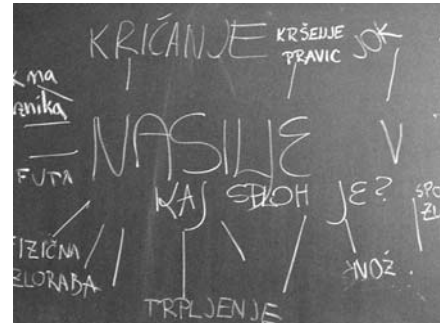 KRIČANJE
KRŠENJE
PRAVIC
JOK
na
NASILJE V
FUTA
KAJ SPLOH JE?
SPO
ZL
FIZIČNA
ZLORABA
NOŽ
TRPLJENJE